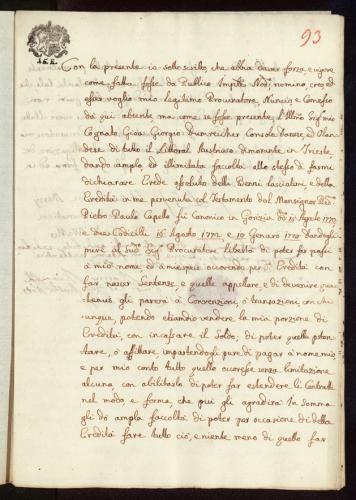 93
I. S. K.
Con la presente io sotto scritto, che abbia dover forza, e vigore
come fatta fosse da Publico Nod.º nomino, creo, ed
esser voglio mio Legitimo Procuratore, Nuncio, e Comesso
da qui absente ma come se fosse presente, l'Illmo Sigr mio
Cognato Gioa: Giorgio Dumreicher Console Danese, ed Olan
dese di tutto il Littoral Austriaco dimorante in Trieste,
dando ampla ed illimitata facoltà allo stesso di farmi
dichiarare Erede assoluto delli Benni lasciatimi, e della
Eredità in me pervenuta col Testamento del Monsignor
Pietro Paulo Capello fu Canonico in Gorizia dd. 15 Aprile 1770
e due Codicilli 16 Agosto 1772 e 10 Genaro 1775 Dandogli
pure al Sigr Procuratore Libertà di poter far passi
à mio nome, ed à mie spese occorrendo per Eredità con
far nascer Sentenze, e quelle appellare, e di devenire qua
tenus gli parerà à Convenzioni, ò transazioni con chi
unque, potendo etiandio vendere la mia porzione di
Eredità, con incassare il Soldo, di poter quella
tare, ò affittare, impartendogli pure di pagar à nome mio
e per mio conto tutto quello occoresse senza limitazione
alcuna, con abilitarlo di poter far estendere li Contratti
nel modo, e forma, che più gli agradirà In Somma
gli dò ampla facoltà di poter per occasione di detta
Eredità fare tutto ciò, e niente meno di quello far